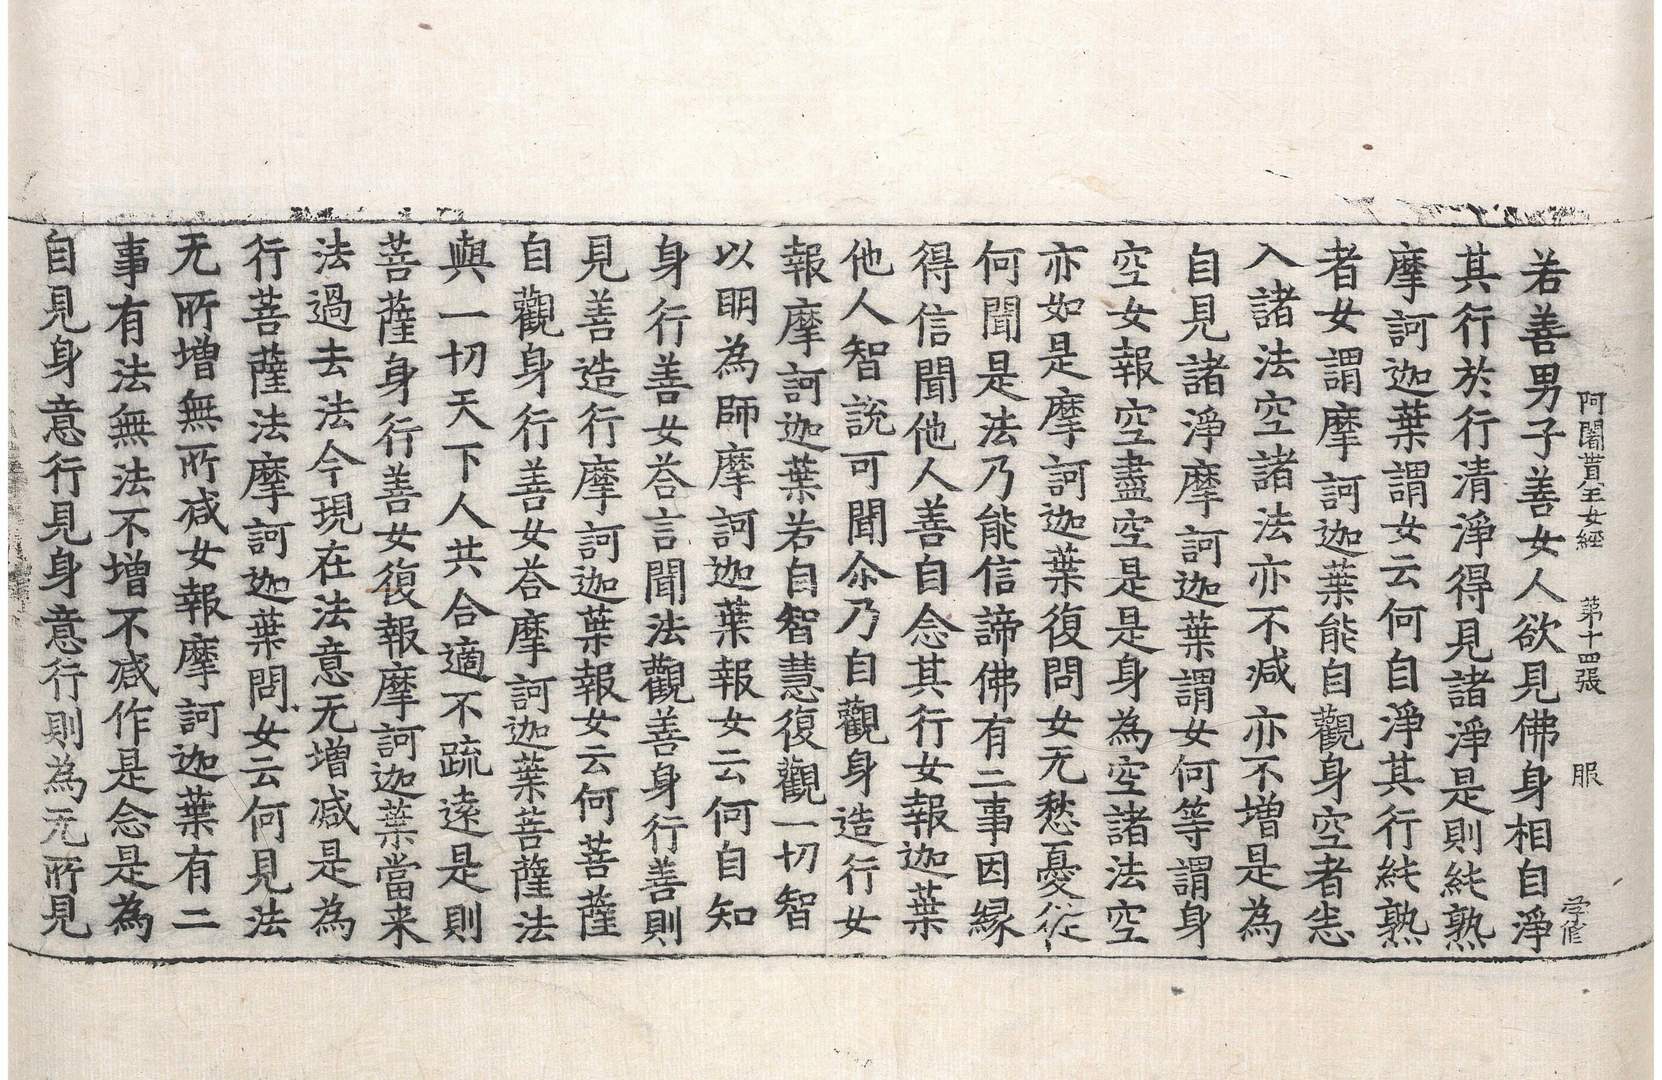 阿闍貰王女經　第十四張　服　孛修
若善男子善女人欲見佛身相自淨
其行於行清淨得見諸淨是則純熟
摩訶迦葉謂女云何自淨其行純熟
者女謂摩訶迦葉能自觀身空者恙
入諸法空諸法亦不減亦不增是為
自見諸淨摩訶迦葉謂女何等謂身
空女報空盡空是是身為空諸法空
亦如是摩訶迦葉復問女无愁憂從
何聞是法乃能信諦佛有二事因縁
得信聞他人善自念其行女報迦葉
他人智說可聞尒乃自觀身造行女
報摩訶迦葉若自智慧復觀一切智
以明為師摩訶迦葉報女云何自知
身行善女荅言聞法觀善身行善則
見善造行摩訶迦葉報女云何菩薩
自觀身行善女荅摩訶迦葉菩薩法
與一切天下人共合適不踈遠是則
菩薩身行善女復報摩訶迦葉當来
法過去法今現在法意无增減是為
行菩薩法摩訶迦葉問女云何見法
无所增無所减女報摩訶迦葉有二
事有法無法不增不减作是念是為
自見身意行見身意行則為无所見